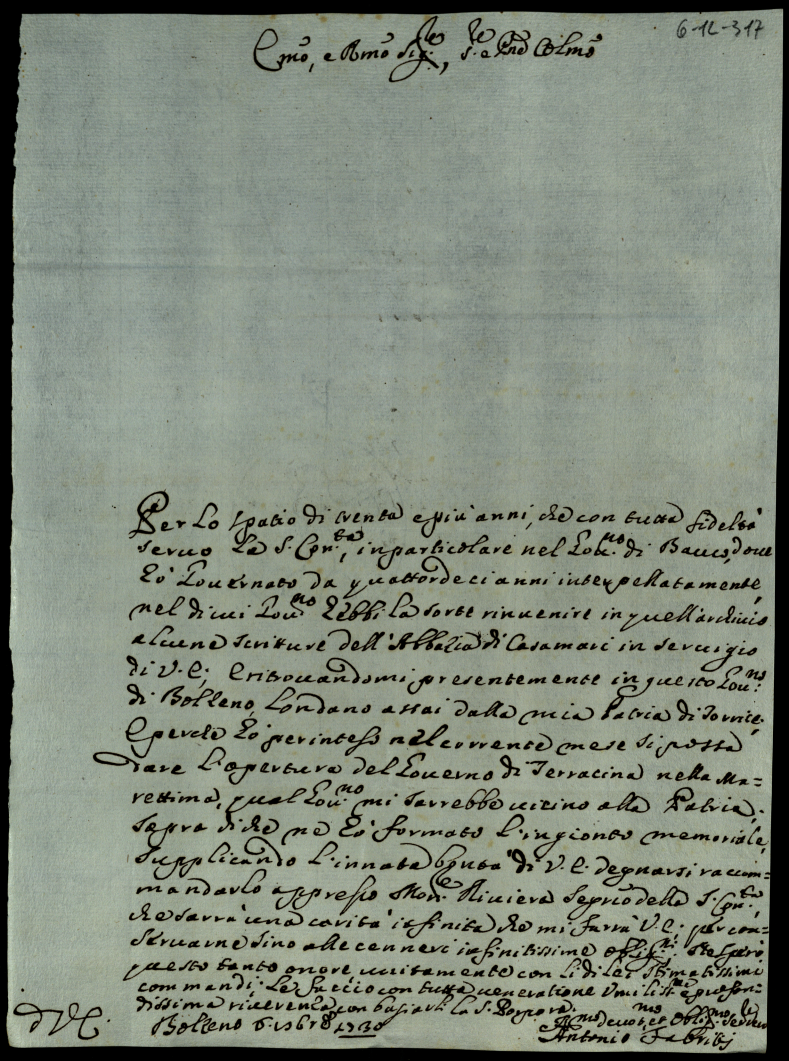 6-12-317
Emo, e Rmo Sig:re, S.re e Pne Colmo
Per Lo spatio di trenta e più anni, che con tutta fideltà
servo La S. Con:ta, in particolare nel Gov:no di Bauco, dove
hò Governato da quattordeci anni interpellatamente,
nel di cui Gov:no hebbi la sorte rinvenire in quell'archivio
alcune scritture dell'Abbatia di Casamari in servigio
di V. E; e ritrovandomi presentemente in questo Gov:no
di Bolseno, Londano assai dalla mia Patria di Torrice.
E perche hò per inteso nel corrente mese si possa
dare L'apertura del Governo di Terracina nella Ma=
rettima, qual Gov:no mi sarrebbe vicino alla Patria.
Sopra di che ne hò formato L'ingionto memoriale,
supplicando L'innata bontà di V. E. degnarsi raccom=
mandarlo appresso Mon:e Riviera Segrio della S. Con:ta,
che sarrà una carità infinita che mi farrà V. E; per con=
servarne sino alle cenneri infinitissime oblig:ni. Che spero
questo tanto onore unitamente con Li di Lei stimatissimi
commandi. Le faccio con tutta veneratione umiliss:ma e profon=
dissima riverenza con bagiarli la S. Porpora.
D V. E.
Bolseno 6 10bre 1730
devot:mo et Oblig:mo Ser:re
Antonio Fabritij